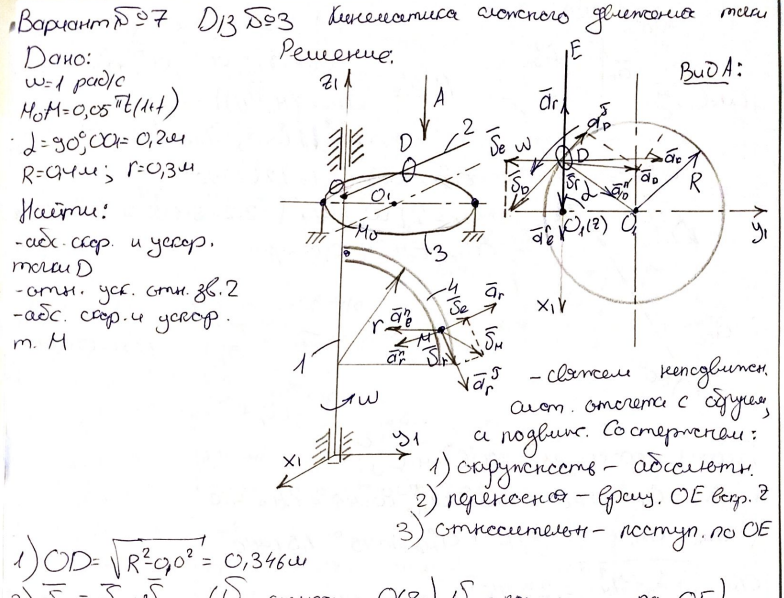 Вариант №7 D13 №3 Кинематика сложного движения точки
Дано:
ω=1 рад/с
M₀M=0,05πt(1+t)
α=90°; OO₁=0,2м
R=0,4м; r=0,3м
Найти:
-абс. скор. и ускор.
точки D
-отн. уск. отн. зв. 2
-абс. скор. и ускор.
т. M
Решение:
z₁
A
D
2
O₁
M₀
3
4
r
M
1
ω
x₁
y₁
Вид A:
E
D
R
α
O₁
y₁
x₁
-свяжем неподвижн.
сист. отсчета с обручем,
а подвиж. со стержнем:
1) окружность – абсолютн.
2) переносная – вращ. OE вокр. z
3) относительн – поступ. по OE
1) OD= √R²-O₁O² = 0,346м